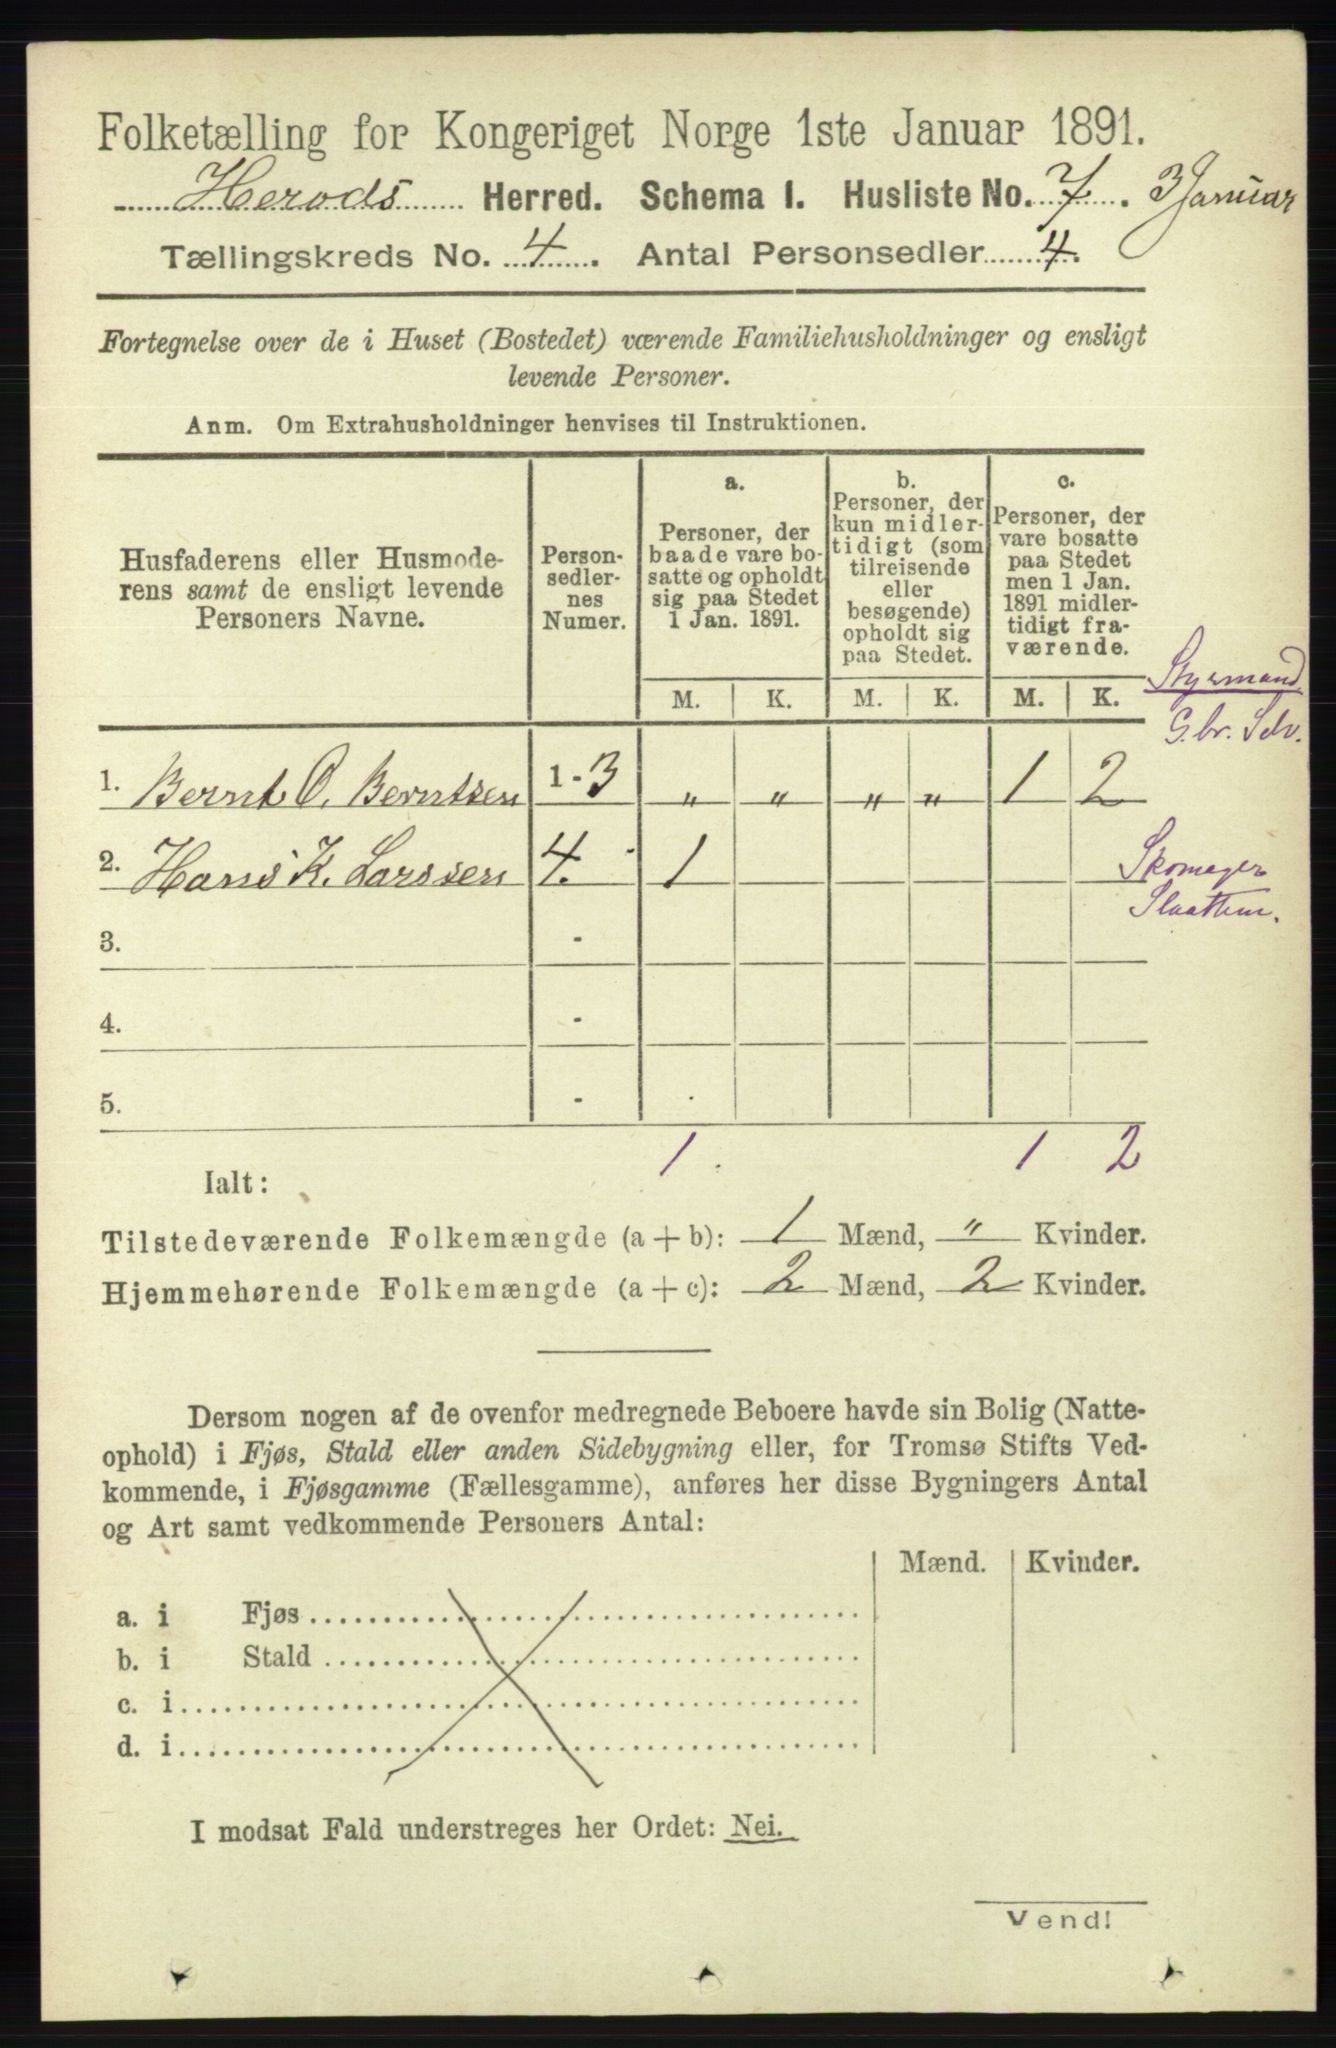 Folketælling for Kongeriget Norge 1ste Januar 1891.
Herods Herred. Schema I. Husliste No. 7. 3 Januar
Tællingskreds No. 4. Antal Personsedler 4.
Fortegnelse over de i Huset (Bostedet) værende Familiehusholdninger og ensligt
levende Personer.
Anm. Om Extrahusholdninger henvises til Instruktionen.
Husfaderens eller Husmode-
rens samt de ensligt levende
Personers Navne.
Person-
sedler-
nes
Numer.
a.
Personer, der
baade vare bo-
satte og opholdt
sig paa Stedet
1 Jan. 1891.
b.
Personer, der
kun midler-
tidigt (som
tilreisende
eller
besøgende)
opholdt sig
paa Stedet.
c.
Personer, der
vare bosatte
paa Stedet
men 1 Jan.
1891 midler-
tidigt fra-
værende.
M. K. M. K. M. K.
Styrmand
G.br. Selv.
1. Bernt O. Berntsen 1 - 3 „ „ „ „ 1 2
2. Hans K. Larssen 4. - 1
Skomager
3. -
4. -
5. -
1 1 2
Ialt:
Tilstedeværende Folkemængde (a + b): 1 Mænd, „ Kvinder.
Hjemmehørende Folkemængde (a + c): 2 Mænd, 2 Kvinder.
Dersom nogen af de ovenfor medregnede Beboere havde sin Bolig (Natte-
ophold) i Fjøs, Stald eller anden Sidebygning eller, for Tromsø Stifts Ved-
kommende, i Fjøsgamme (Fællesgamme), anføres her disse Bygningers Antal
og Art samt vedkommende Personers Antal:
Mænd. Kvinder.
a. i Fjøs
b. i Stald
c. i
d. i
I modsat Fald understreges her Ordet: Nei.
Vend!